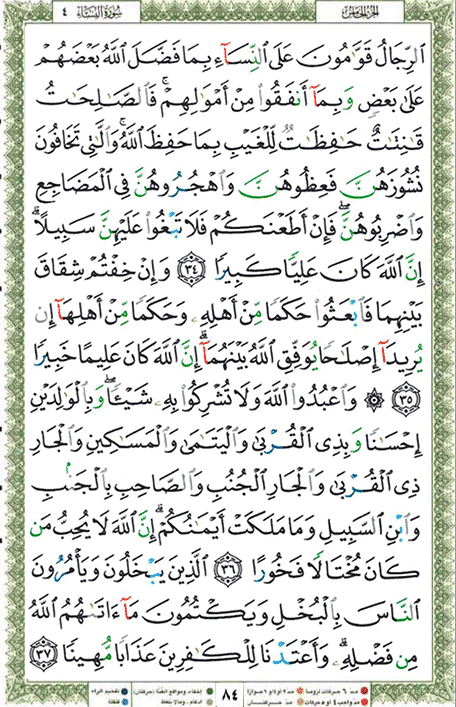 الجزء الخامس
سورة النساء ٤
الرِّجَالُ قَوَّٰمُونَ عَلَى النِّسَآءِ بِمَا فَضَّلَ اللَّهُ بَعْضَهُمْ
عَلَىٰ بَعْضٍ وَبِمَآ أَنفَقُوا۟ مِنْ أَمْوَٰلِهِمْ ۚ فَالصَّٰلِحَٰتُ
قَٰنِتَٰتٌ حَٰفِظَٰتٌ لِّلْغَيْبِ بِمَا حَفِظَ اللَّهُ ۚ وَالَّٰتِى تَخَافُونَ
نُشُوزَهُنَّ فَعِظُوهُنَّ وَاهْجُرُوهُنَّ فِى الْمَضَاجِعِ
وَاضْرِبُوهُنَّ ۖ فَإِنْ أَطَعْنَكُمْ فَلَا تَبْغُوا۟ عَلَيْهِنَّ سَبِيلًا ۗ
إِنَّ اللَّهَ كَانَ عَلِيًّا كَبِيرًا ٣٤ وَإِنْ خِفْتُمْ شِقَاقَ
بَيْنِهِمَا فَابْعَثُوا۟ حَكَمًا مِّنْ أَهْلِهِۦ وَحَكَمًا مِّنْ أَهْلِهَآ إِن
يُرِيدَآ إِصْلَٰحًا يُوَفِّقِ اللَّهُ بَيْنَهُمَآ ۗ إِنَّ اللَّهَ كَانَ عَلِيمًا خَبِيرًا
٣٥ ۞ وَاعْبُدُوا۟ اللَّهَ وَلَا تُشْرِكُوا۟ بِهِۦ شَيْـًٔا ۖ وَبِالْوَٰلِدَيْنِ
إِحْسَٰنًا وَبِذِى الْقُرْبَىٰ وَالْيَتَٰمَىٰ وَالْمَسَٰكِينِ وَالْجَارِ
ذِى الْقُرْبَىٰ وَالْجَارِ الْجُنُبِ وَالصَّاحِبِ بِالْجَنۢبِ
وَابْنِ السَّبِيلِ وَمَا مَلَكَتْ أَيْمَٰنُكُمْ ۗ إِنَّ اللَّهَ لَا يُحِبُّ مَن
كَانَ مُخْتَالًا فَخُورًا ٣٦ الَّذِينَ يَبْخَلُونَ وَيَأْمُرُونَ
النَّاسَ بِالْبُخْلِ وَيَكْتُمُونَ مَآ ءَاتَىٰهُمُ اللَّهُ
مِن فَضْلِهِۦ ۗ وَأَعْتَدْنَا لِلْكَٰفِرِينَ عَذَابًا مُّهِينًا ٣٧
٨٤